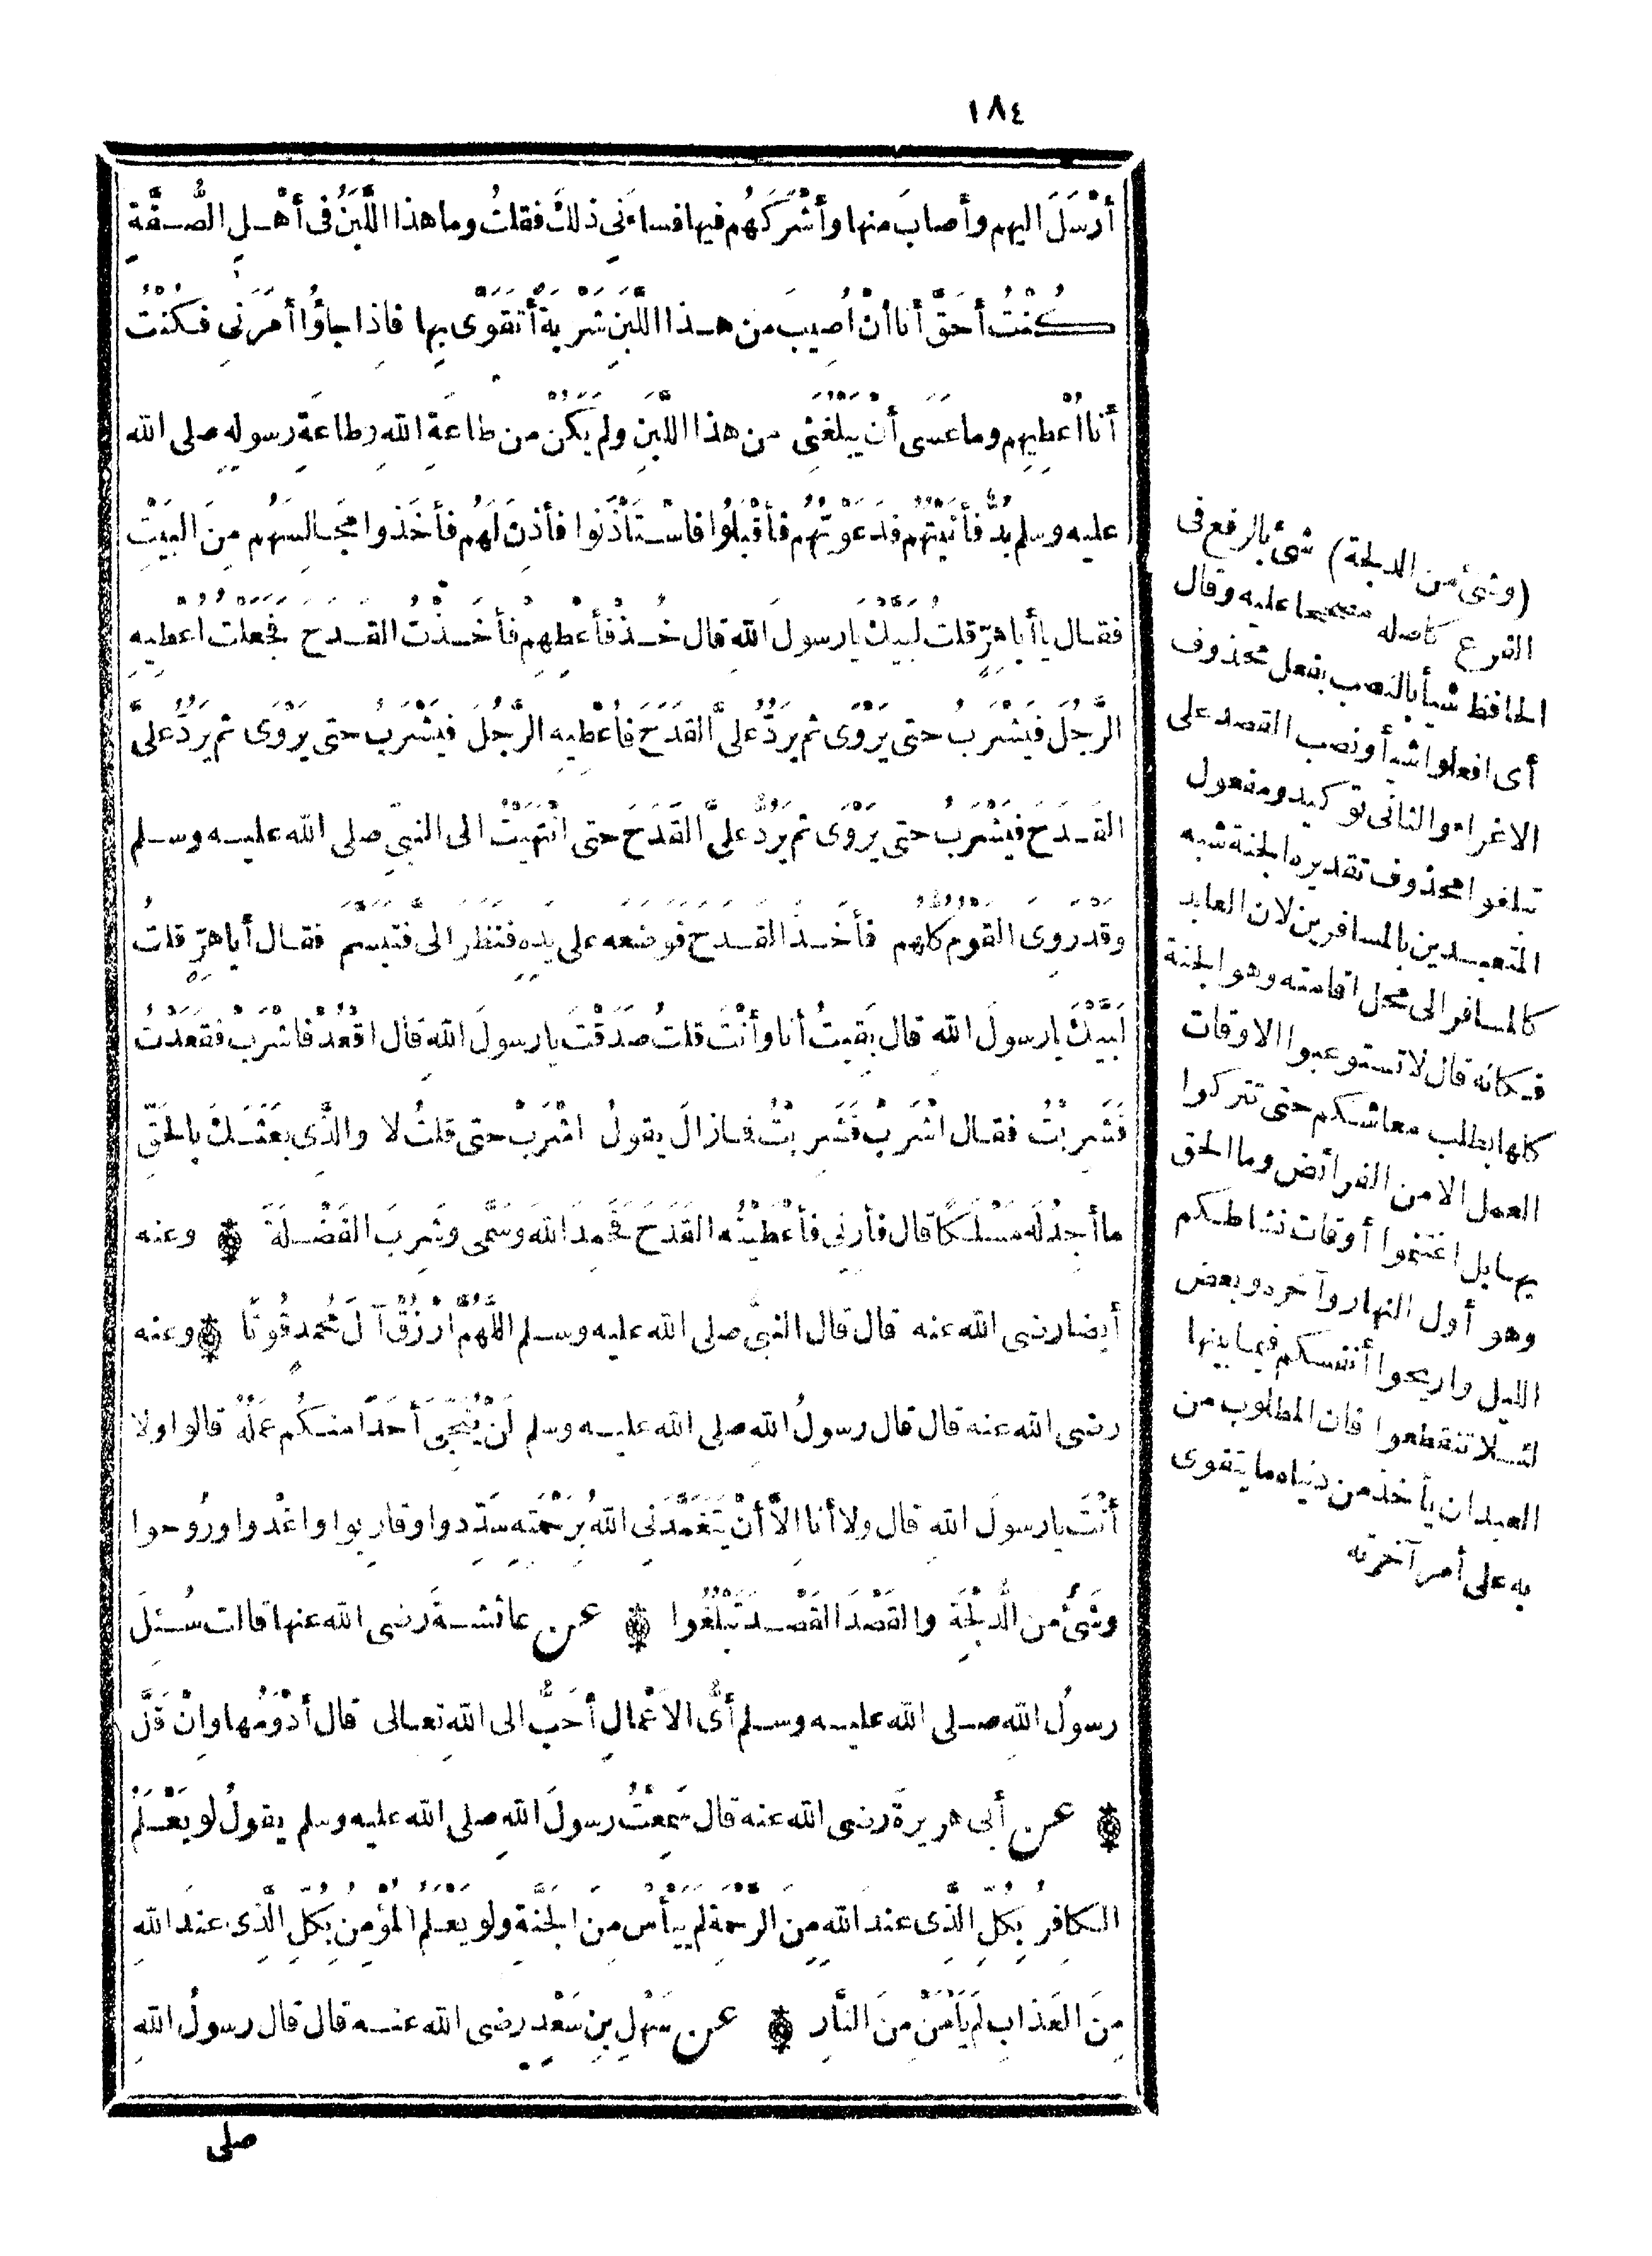 ١٨٤
أَرْسَلَ اليهم وأصابَ منها وأَشْرَكَهُم فيها فساءَنِي ذلكَ فقلتُ وما هذا اللَّبَنُ فى أهْلِ الصُّفَّةِ
كُنْتُ أَحَقَّ أنا أنْ أُصِيبَ من هذا اللَّبَنِ شَرْبَةً أَتَقَوَّى بِها فاِذا جاؤُا أَمَرَنِى فكُنْتُ
أنا أُعْطِيهِم وما عَسَى أنْ يَبْلُغَنِى من هذا اللَّبَنِ ولم يَكُنْ من طاعَةِ اللهِ وطاعَةِ رسولِهِ صلى الله
عليه وسلم بُدٌّ فأَتَيْتُهُم فدَعَوْتُهُم فأَقْبَلُوا فاسْتَأْذَنُوا فأَذِنَ لَهُم فأَخَذوا مَجالِسَهُم مِنَ البَيْتِ
فقال ياأباهِرٍّ قلتُ لَبَّيْكَ يارسولَ اللهِ قال خُذْ فأَعْطِهِم فأَخَذْتُ القَدَحَ فَجَعَلْتُ أُعْطِيهِ
الرَّجُلَ فَيَشْرَبُ حتى يَرْوَى ثم يَرُدُّ علىَّ القَدَحَ فأُعْطِيهِ الرَّجُلَ فَيَشْرَبُ حتى يَرْوَى ثم يَرُدُّ علىَّ
القَدَحَ فيَشْرَبُ حتى يَرْوَى ثم يَرُدُّ علىَّ القَدَحَ حتى انْتَهَيْتُ الى النبىِّ صلى الله عليه وسلم
وقد رَوِىَ القومُ كلُّهم فأَخَذَ القَدَحَ فوضَعَه على يدِهِ فنَظَر الىَّ فتَبَسَّمَ فقال أباهِرٍّ قلتُ
لَبَّيْكَ يارسولَ اللهِ قال بَقِيتُ أنا وأَنْتَ قلتُ صَدَقْتَ يارسولَ اللهِ قال اقْعُدْ فاشْرَبْ فقَعَدْتُ
فَشَرِبْتُ فقال اشْرَبْ فَشَرِبْتُ فمازالَ يقولُ اشْرَبْ حتى قلتُ لا والَّذِى بَعَثَكَ بالحَقِّ
ما أجِدُ لَه مَسْلَكًا قال فأَرِنِى فأَعْطَيْتُه القَدَحَ فَحَمِدَ اللهَ وسَمَّى وشَرِبَ الفَضْلَةَ ۞ وعنه
أيضا رضى الله عنه قال قال النبىُّ صلى الله عليه وسلم اللَّهُمَّ ارْزُقْ آلَ مُحمدٍ قُوتًا ۞ وعنه
رضى الله عنه قال قال رسولُ اللهِ صلى الله عليه وسلم لَنْ يُنَجِّىَ أَحَدًا منكُم عَمَلُهُ قالوا ولا
أَنْتَ يارسولَ اللهِ قال ولا أنا اِلَّا أنْ يَتَغَمَّدَنِى اللهُ بِرَحْمَتِه سَدِّدوا وقارِبوا واغْدوا ورُوحوا
وشَىْءٌ من الدُّلْجَةِ والقَصْدَ القَصْدَ تَبْلُغُوا ۞ عن عائشةَ رضى الله عنها قالت سُئِلَ
رسولُ اللهِ صلى الله عليه وسلم أىُّ الاَعْمالِ أَحَبُّ الى اللهِ تعالى قال أَدْوَمُها واِنْ قَلَّ
۞ عن أبى هريرةَ رضى الله عنه قال سَمِعْتُ رسولَ اللهِ صلى الله عليه وسلم يقولُ لو يَعْلَمُ
الكافِرُ بِكُلِّ الَّذِى عندَ اللهِ مِنَ الرَّحْمَةِ لم يَيْأَسْ مِنَ الجَنَّةِ ولو يَعْلَمُ المُؤْمِنُ بِكُلِّ الَّذِى عندَ اللهِ
مِنَ العَذابِ لم يَأْمَنْ مِنَ النَّارِ ۞ عن سَهْلِ بنِ سَعْدٍ رضى الله عنه قال قال رسولُ اللهِ
صلى
(وشئ من الدلجة) شئ بالرفع فى
الفرع كاصله مصححا عليه وقال
الحافظ شيأ بالنصب بفعل محذوف
أى افعلوا شيأ ونصب القصد على
الاغراء والثانى توكيد ومفعول
تبلغوا محذوف تقديره الجنة شبه
المتعبدين بالمسافرين لان العابد
كالمسافر الى محل اقامته وهو الجنة
فكانه قال لا تستوعبوا الاوقات
كلها بطلب معاشكم حتى تتركوا
العمل الا من الفرائض وما الحق
بها بل اغتنموا أوقات نشاطكم
وهو أول النهار وآخره وبعض
الليل واريحوا أنفسكم فيما بينها
لئلا تنقطعوا فان المطلوب من
العبد ان يأخذ من دنياه ما يتقوى
به على أمر آخرته